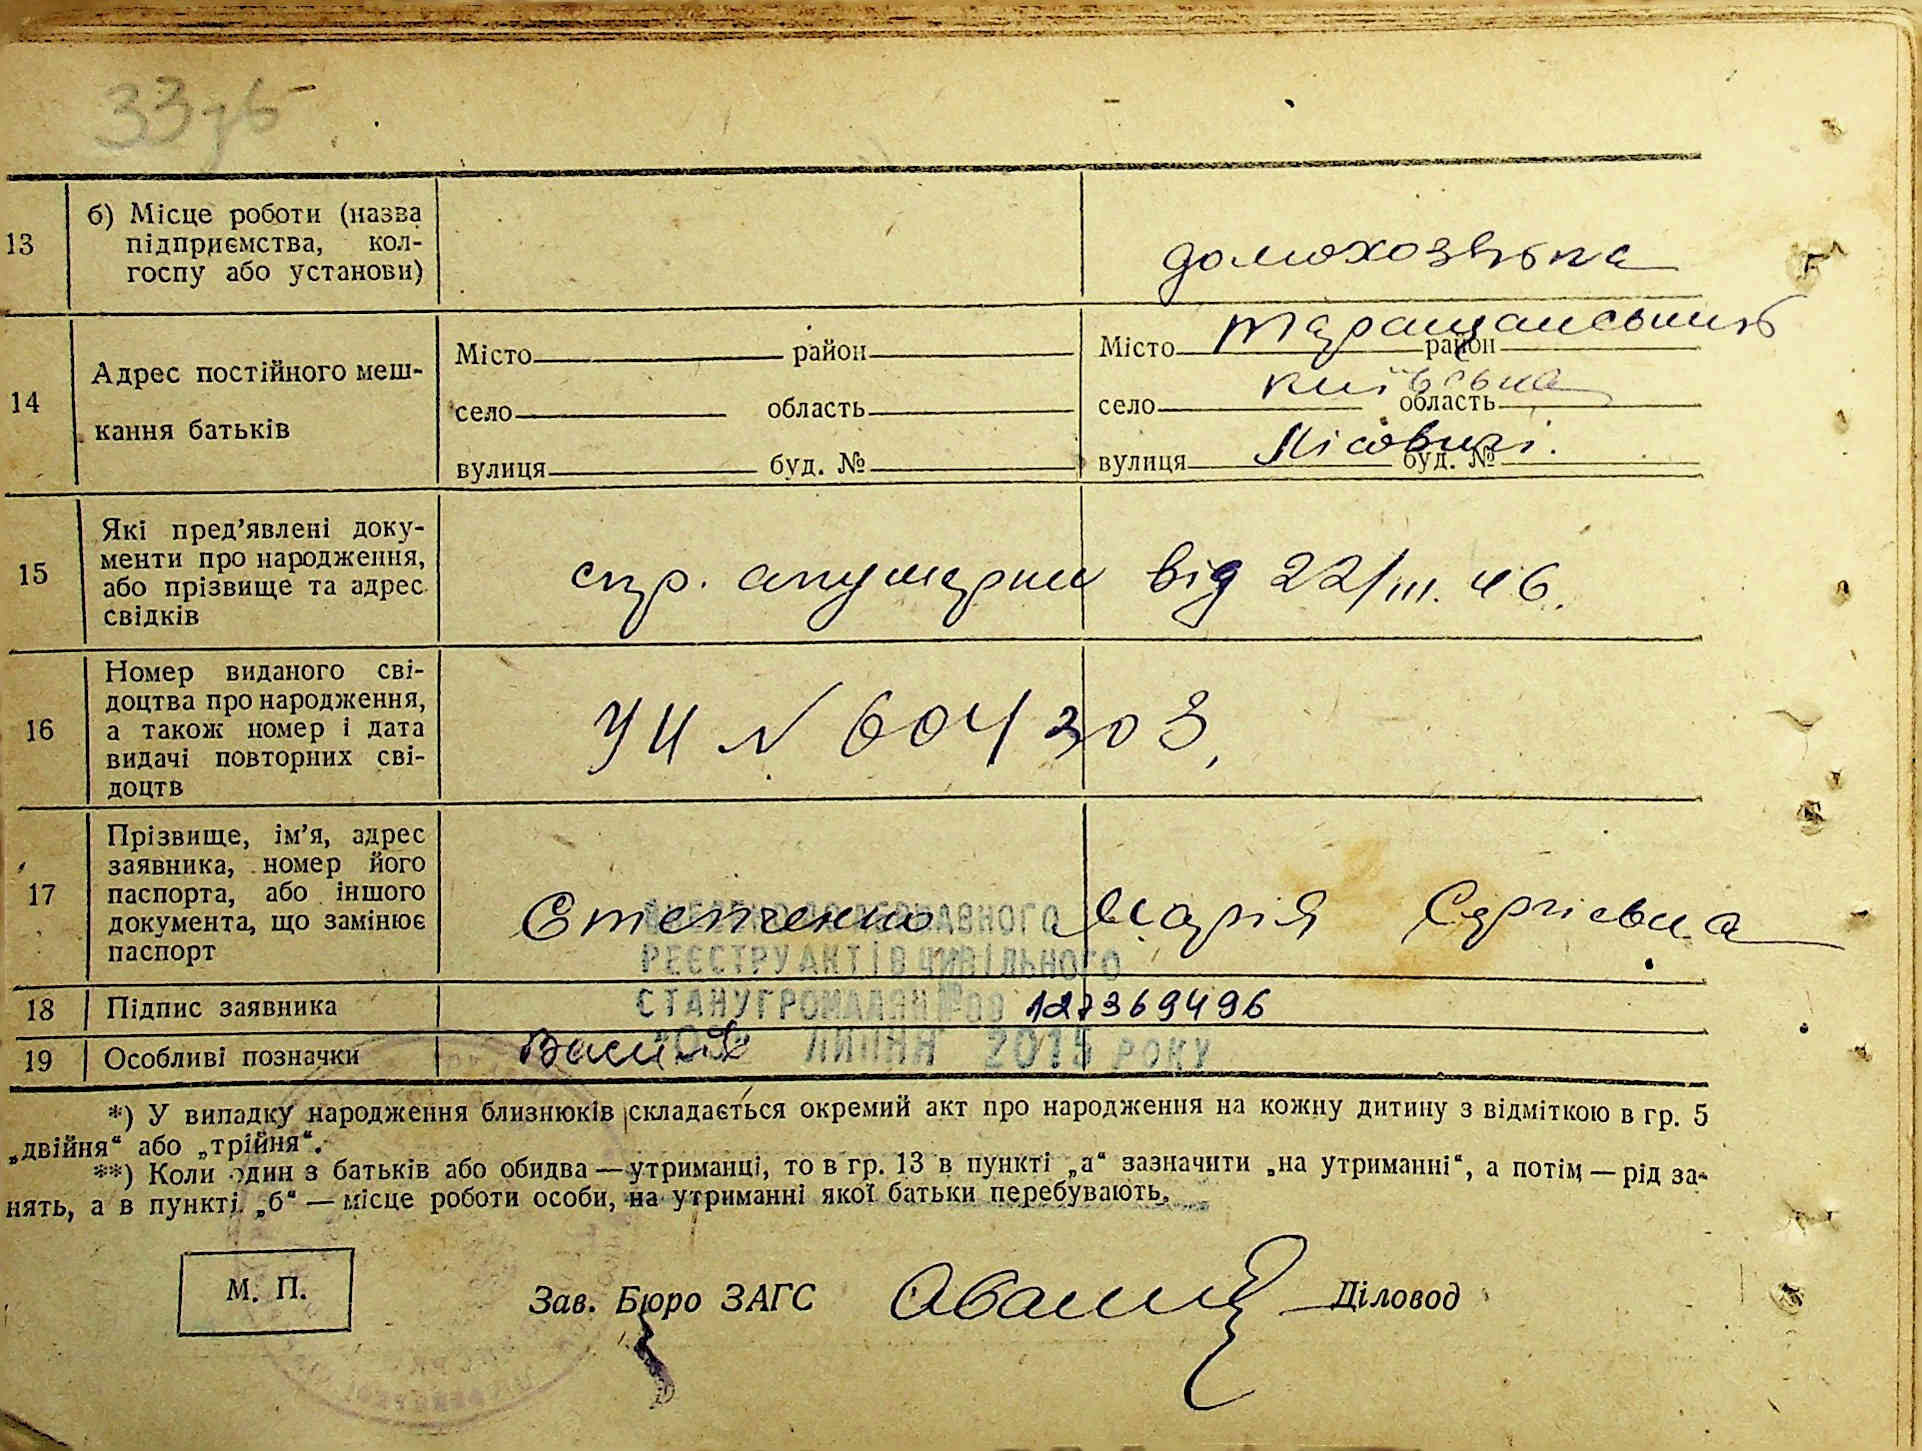 33
13
б) Місце роботи (назва
підприємства, кол-
госпу або установи)
домохозяька
14
Адрес постійного меш-
кання батьків
Місто район
село область
вулиця буд. №
Таращанський
Місто район
київська
село область
Лісовичі.
вулиця буд. №
15
Які пред’явлені доку-
менти про народження,
або прізвище та адрес
свідків
спр. акушерки від 22/III. 46.
16
Номер виданого сві-
доцтва про народження,
а також номер і дата
видачі повторних сві-
доцтв
УЦ № 604303,
17
Прізвище, ім’я, адрес
заявника, номер його
паспорта, або іншого
документа, що замінює
паспорт
Степченко Марія Сергієвна
ДО ДЕРЖАВНОГО
РЕЄСТРУ АКТІВ ЦИВІЛЬНОГО
СТАНУ ГРОМАДЯН № 00 127369496
ЛИПНЯ 2015 РОКУ
18
Підпис заявника
19
Особливі позначки
*) У випадку народження близнюків складається окремий акт про народження на кожну дитину з відміткою в гр. 5
„двійня“ або „трійня“.
**) Коли один з батьків або обидва — утриманці, то в гр. 13 в пункті „а“ зазначити „на утриманні“, а потім — рід за-
нять, а в пункті „б“ — місце роботи особи, на утриманні якої батьки перебувають.
М. П.
Зав. Бюро ЗАГС
Діловод